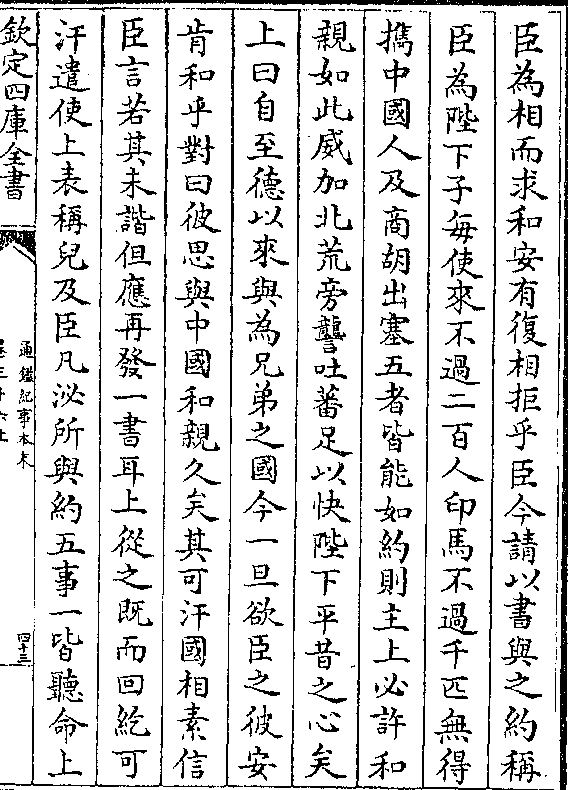 臣為相而求和安有復相拒乎臣今請以書與之約稱
臣為陛下子每使來不過二百人印馬不過千匹無得
攜中國人及商胡出塞五者皆能如約則主上必許和
親如此威加北荒旁讋吐蕃足以快陛下平昔之心矣
上曰自至德以來與為兄弟之國今一旦欲臣之彼安
肯和乎對曰彼思與中國和親久矣其可汗國相素信
臣言若其未諧但應再發一書耳上從之既而回紇可
汗遣使上表稱兒及臣凡泌所與約五事一皆聽命上
欽定四庫全書
通鑑紀事本末
四十三